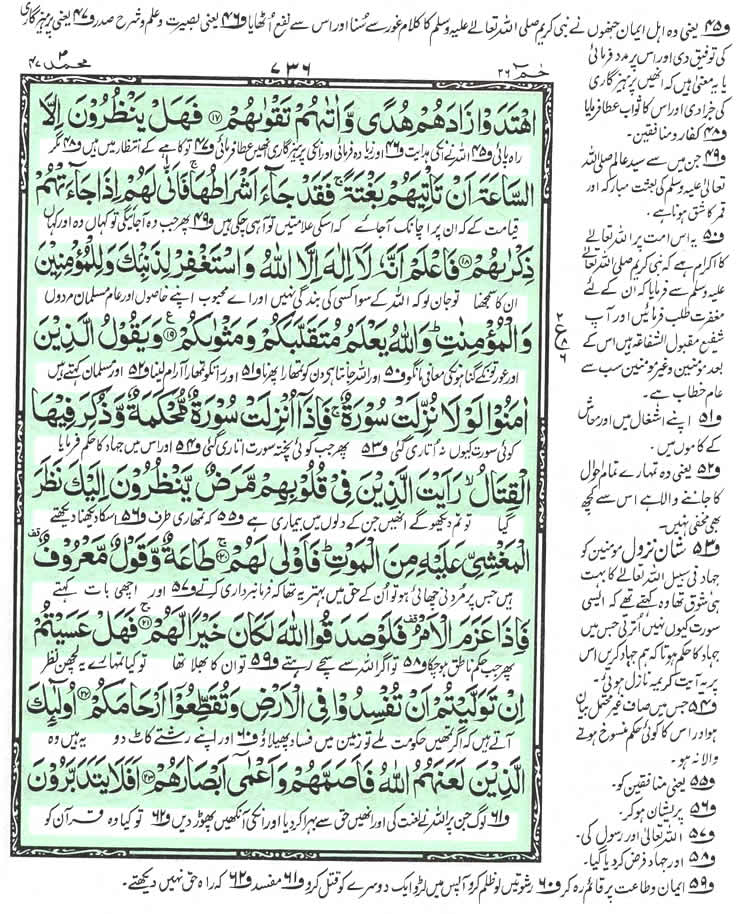 و۴۵ یعنی وہ اہل ایمان جنھوں نے نبی کریم صلی اللہ تعالےٰ علیہ وسلم کا کلام غور سے سُنا اور اس سے نفع اُٹھایا و۴۶ یعنی بصیرت و علم و شرح صدر و۴۷ یعنی پرہیزگاری
کی توفیق دی اور اس پر مدد فرمائی
یا یہ معنیٰ ہیں کہ انھیں پرہیزگاری
کی جزا دی اور اس کا ثواب عطا فرمایا
و۴۸ کفار و منافقین۔
و۴۹ جن میں سے سید عالم صلی اللہ
تعالیٰ علیہ وسلم کی بعثت مبارکہ اور
قمر کا شق ہونا ہے۔
و۵۰ یہ اس امت پر اللہ تعالےٰ
کا اکرام ہے کہ نبی کریم صلی اللہ تعالےٰ
علیہ وسلم سے فرمایا کہ ان کے لئے
مغفرت طلب فرمائیں اور آپ
شفیع مقبول الشفاعۃ ہیں اس کے
بعد مومنین و غیر مومنین سب سے
عام خطاب ہے۔
و۵۱ اپنے اشغال میں اور معاش
کے کاموں میں۔
و۵۲ یعنی وہ تمہارے تمام احوال
کا جاننے والا ہے اس سے کچھ
بھی مخفی نہیں۔
و۵۳ شان نزول مومنین کو
جہاد فی سبیل اللہ تعالےٰ کا بہت
ہی شوق تھا وہ کہتے تھے کہ ایسی
سورت کیوں نہیں اُترتی جس میں
جہاد کا حکم ہوتا کہ ہم جہاد کریں اس
پر یہ آیت کریمہ نازل ہوئی۔
و۵۴ جس میں صاف غیر محتمل بیان
ہو اور اس کا کوئی حکم منسوخ ہونے
والا نہ ہو۔
و۵۵ یعنی منافقین کو۔
و۵۶ پریشان ہو کر۔
و۵۷ اللہ تعالیٰ اور رسول کی۔
و۵۸ اور جہاد فرض کر دیا گیا۔
حٰمٓ ۲۶
۷۳۶
محمد ۴۷
اهْتَدَوْا زَادَهُمْ هُدًى وَّاٰتٰىهُمْ تَقْوٰىهُمْ ۱۷ فَهَلْ يَنْظُرُوْنَ اِلَّا
راہ پائی و۴۵ اللہ نے انکی ہدایت و۴۶ اور زیادہ فرمائی اور انکی پرہیزگاری انھیں عطا فرمائی و۴۷ تو کاہے کے انتظار میں ہیں و۴۸ مگر
السَّاعَةَ اَنْ تَاْتِيَهُمْ بَغْتَةً ۚ فَقَدْ جَآءَ اَشْرَاطُهَا ۚ فَاَنّٰى لَهُمْ اِذَا جَآءَتْهُمْ
قیامت کے کہ ان پر اچانک آجائے کہ اسکی علامتیں تو آہی چکی ہیں و۴۹ پھر جب وہ آجائیگی تو کہاں وہ اور کہاں
ذِكْرٰىهُمْ ۱۸ فَاعْلَمْ اَنَّهٗ لَاۤ اِلٰهَ اِلَّا اللّٰهُ وَاسْتَغْفِرْ لِذَنْۢبِكَ وَلِلْمُؤْمِنِيْنَ
ان کا سمجھنا تو جان لو کہ اللہ کے سوا کسی کی بندگی نہیں اور اے محبوب اپنے خاصوں اور عام مسلمان مردوں
وَالْمُؤْمِنٰتِ ؕ وَاللّٰهُ يَعْلَمُ مُتَقَلَّبَكُمْ وَمَثْوٰىكُمْ ۱۹ وَيَقُوْلُ الَّذِيْنَ
اور عورتوں کے گناہو نکی معافی مانگو و۵۰ اور اللہ جانتا ہے دن کو تمھارا پھرنا و۵۱ اور رات کو تمھارا آرام لینا و۵۲ اور مسلمان کہتے ہیں
اٰمَنُوْا لَوْلَا نُزِّلَتْ سُوْرَةٌ ۚ فَاِذَاۤ اُنْزِلَتْ سُوْرَةٌ مُّحْكَمَةٌ وَّذُكِرَ فِيْهَا
کوئی سورت کیوں نہ اُتاری گئی و۵۳ پھر جب کوئی پختہ سورت اتاری گئی و۵۴ اور اس میں جہاد کا حکم فرمایا
الْقِتَالُ ۙ رَاَيْتَ الَّذِيْنَ فِيْ قُلُوْبِهِمْ مَّرَضٌ يَّنْظُرُوْنَ اِلَيْكَ نَظَرَ
گیا تو تم دیکھو گے انھیں جن کے دلوں میں بیماری ہے و۵۵ کہ تمھاری طرف و۵۶ اسکا دیکھنا دیکھتے
الْمَغْشِيِّ عَلَيْهِ مِنَ الْمَوْتِ ؕ فَاَوْلٰى لَهُمْ ۲۰ طَاعَةٌ وَّقَوْلٌ مَّعْرُوْفٌ
ہیں جس پر مردنی چھائی ہو تو اُن کے حق میں بہتر یہ تھا کہ فرمانبرداری کرتے و۵۷ اور اچھی بات کہتے
فَاِذَا عَزَمَ الْاَمْرُ فَلَوْ صَدَقُوا اللّٰهَ لَكَانَ خَيْرًا لَّهُمْ ۲۱ فَهَلْ عَسَيْتُمْ
پھر جب حکم ناطق ہوچکا و۵۸ تو اگر اللہ سے سچے رہتے و۵۹ تو ان کا بھلا تھا تو کیا تمہارے یہ لچھن نظر
اِنْ تَوَلَّيْتُمْ اَنْ تُفْسِدُوْا فِي الْاَرْضِ وَتُقَطِّعُوْۤا اَرْحَامَكُمْ ۲۲ اُولٰٓئِكَ
آتے ہیں کہ اگر تمھیں حکومت ملے تو زمین میں فساد پھیلاؤ و۶۰ اور اپنے رشتے کاٹ دو یہ ہیں وہ
الَّذِيْنَ لَعَنَهُمُ اللّٰهُ فَاَصَمَّهُمْ وَاَعْمٰۤى اَبْصَارَهُمْ ۲۳ اَفَلَا يَتَدَبَّرُوْنَ
و۶۱ لوگ جن پر اللہ نے لعنت کی اور انھیں حق سے بہرا کردیا اور انکی آنکھیں پھوڑ دیں و۶۲ تو کیا وہ قرآن کو
و۵۹ ایمان و طاعت پر قائم رہ کر و۶۰ رشوتیں لو ظلم کرو آپس میں لڑو ایک دوسرے کو قتل کرو و۶۱ مفسد و۶۲ کہ راہ حق نہیں دیکھتے۔